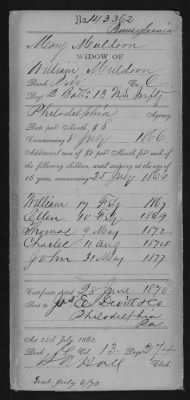 No. 143362
Pennsylvania
Mary Muldoon
WIDOW OF
William Muldoon
Rank Co. C
Reg't 2 Batt. 13 U.S. Infty
Philadelphia Agency
Rate per Month, $8
Commencing July 1866
Additional sum of $2 per Month for each of
the following children, until arriving at the age of
16 years, commencing 25 July 1866
William 17 Feby 1867
Ellen 10 Feby 1869
Thomas 9 May 1872
Charles 11 Aug 1874
John 31 May 1877
Certificate dated 28 June 1870
Sent to Jos E Devitt & Co
Philadelphia
Pa
Act 14th July, 1862.
Book G Vol. 13 Page 274
Clerk.